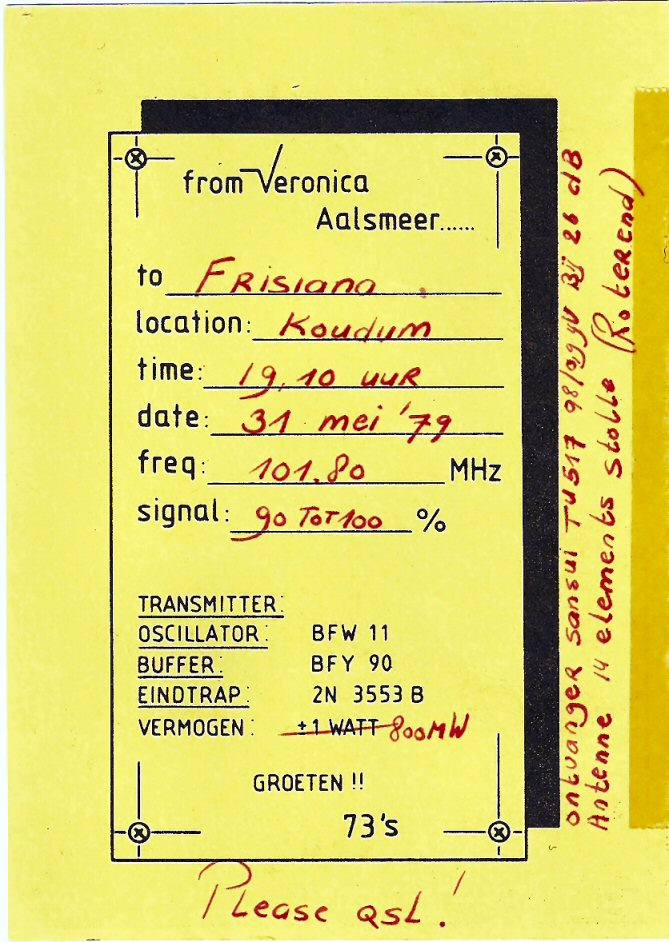 from Veronica
Aalsmeer......
to Frisiana
location: Koudum
time: 19.10 uur
date: 31 mei '79
freq: 101.80 MHz
signal: 90 Tot 100 %
TRANSMITTER:
OSCILLATOR: BFW 11
BUFFER: BFY 90
EINDTRAP: 2N 3553 B
VERMOGEN: ±1 WATT 800MW
GROETEN !!
73's
Please QSL!
ontvanger sansui TU517 98/ BIJ 26 dB
Antenne 14 elements stolle (Roterend)